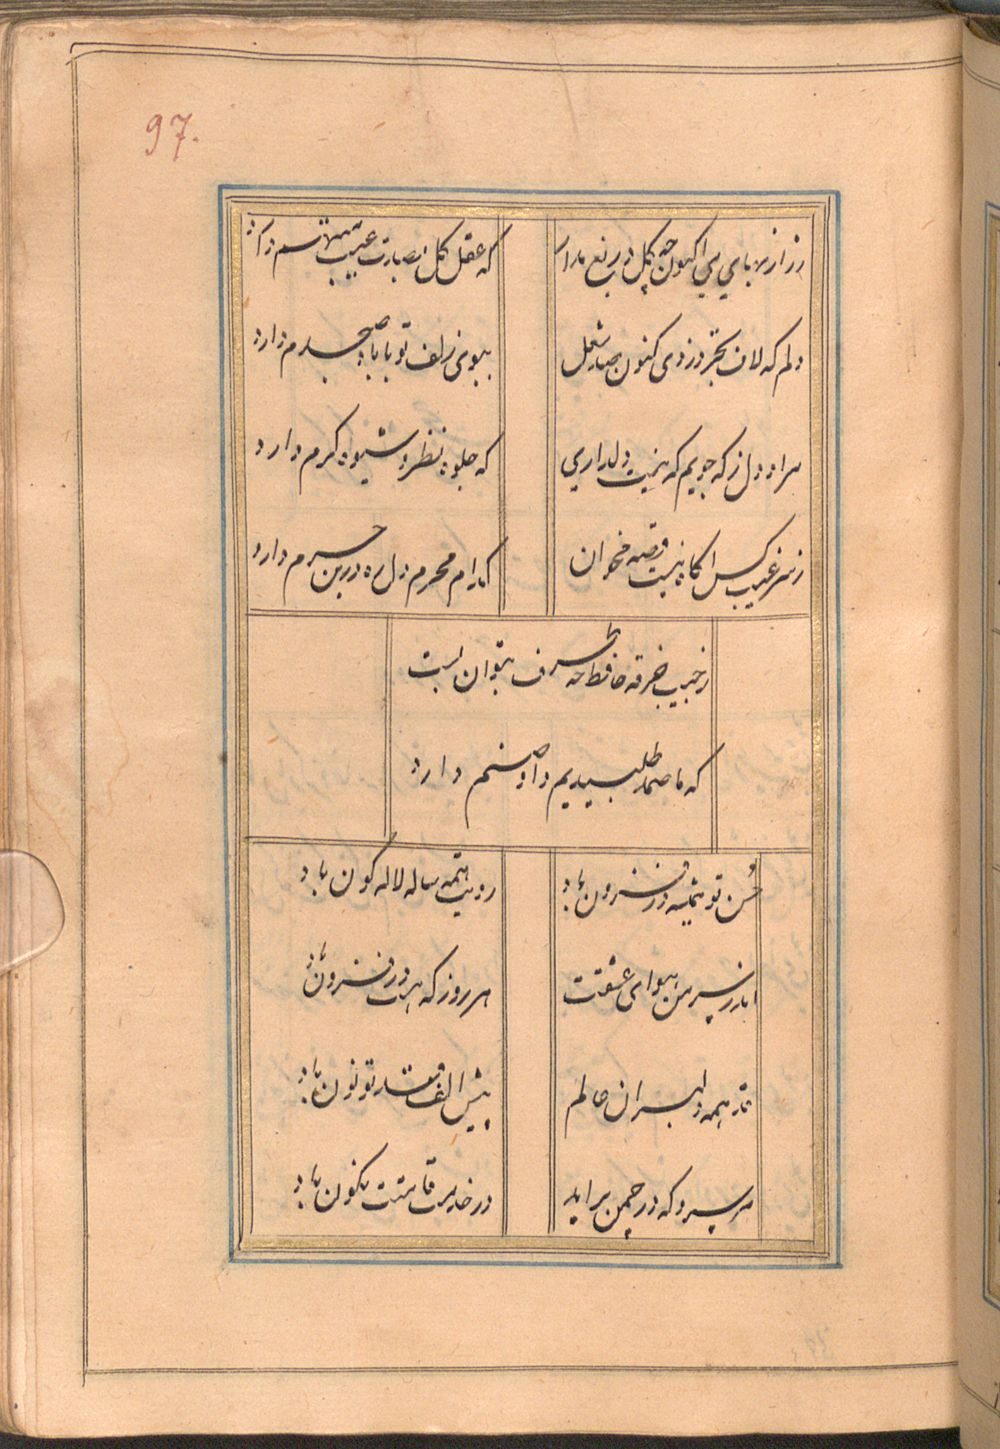 97.
زر از بهای می اکنون چو گل دریغ مدار که عقل کل بصدت عیب متهم دارد
دلم که لاف تجرد زدی کنون صد شغل ببوی زلف تو با باد صبحدم دارد
مراد دل ز که جویم که نیست دلداری که جلوه نظر و شیوه کرم دارد
ز سر غیب کس آگاه نیست قصه مخوان کدام محرم دل ره درین حرم دارد
ز جیب خرقه حافظ چه طرف بتوان بست
که ما صمد طلبیدیم و او صنم دارد
حسن تو همیشه در فزون باد رویت همه ساله لاله گون باد
اندر سر من هوای عشقت هر روز که هست در فزون باد
قد همه دلبران عالم پیش الف قدت چو نون باد
هر سرو که در چمن برآید در خدمت قامتت نگون باد